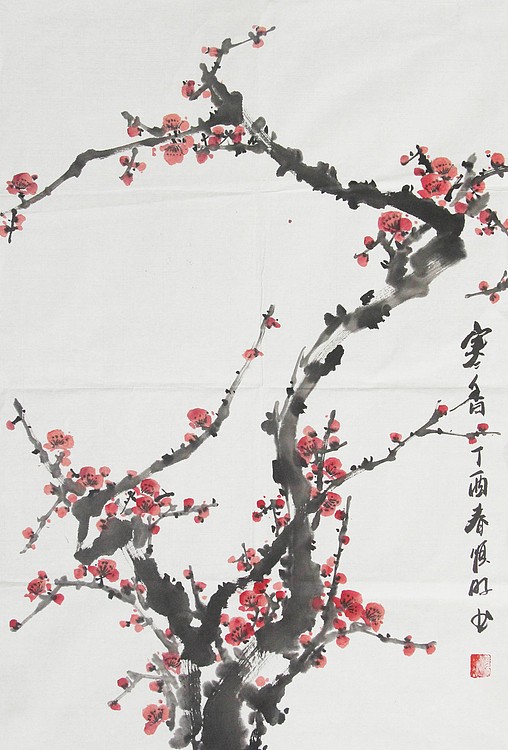 寒香
丁酉春恒明书